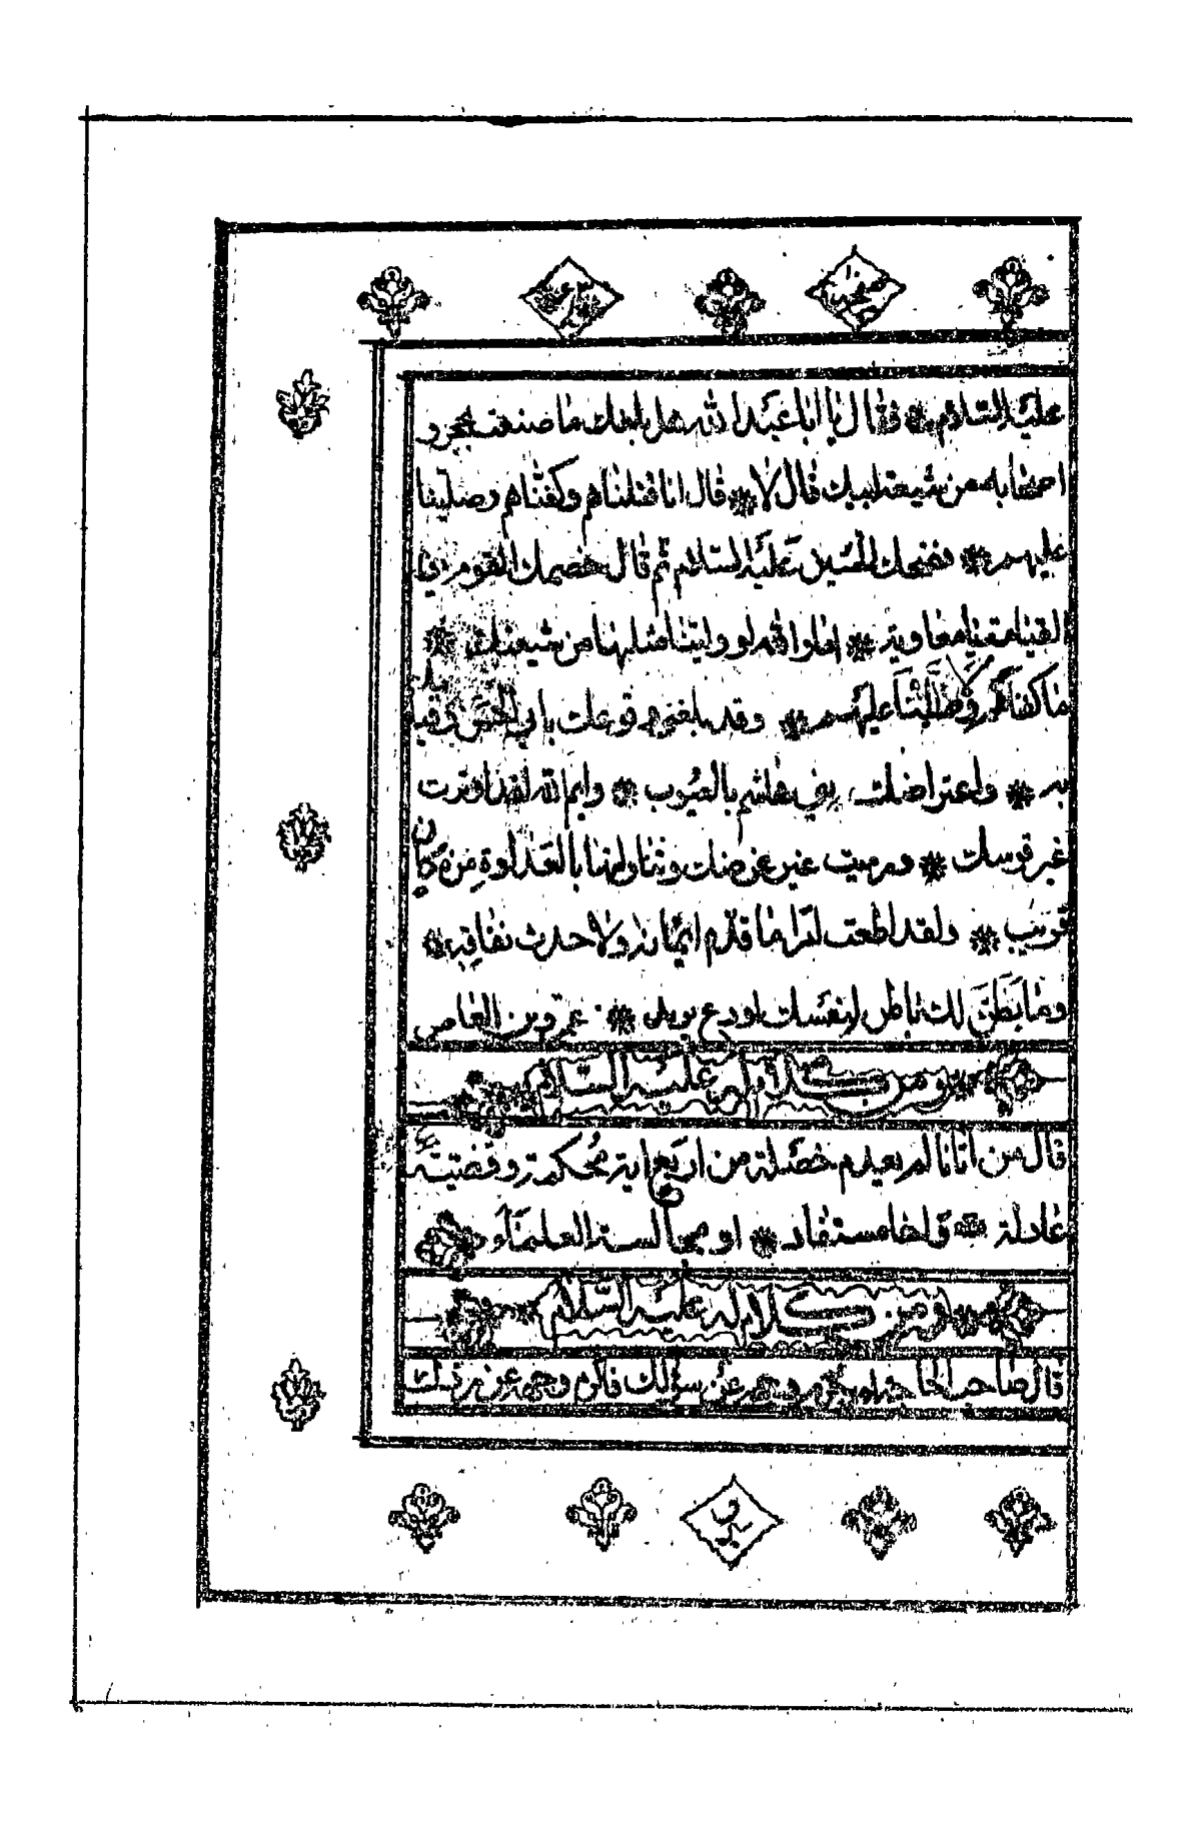 عليه السلام فقال يا ابا عبد الله هل بلغك ما صنعت بحجر و
اصحابه من شيعة ابيك قال لا قال انا قتلناهم وكفناهم وصلينا
عليهم فضحك الحسين عليه السلام ثم قال خصمك القوم
القيامة يا معاوية اما والله لو ولينا مثلها من شيعتك
ما كفناهم ولا صلينا عليهم وقد بلغني وقوعك بابي الحسن وقيامك
به واعتراضك بني هاشم بالعيوب وايم الله لقد اوترت
غير قوسك ورميت غير غرضك وتناولتها بالعداوة من مكان
قريب ولقد اطعت امرأ ما قدم ايمانه ولا حدث نفاقه
وما نظر لك فانظر لنفسك او دع يريد عمرو بن العاص
ومن كلام له عليه السلام
قال من اتانا لم يعدم خصلة من اربع اية محكمة وقضية
عادلة واخا مستفاد او مجالسة العلماء
ومن كلام له عليه السلام
قال صاحب الحاجة لم يكرم وجهه عن سؤالك فاكرم وجهك عن ردك